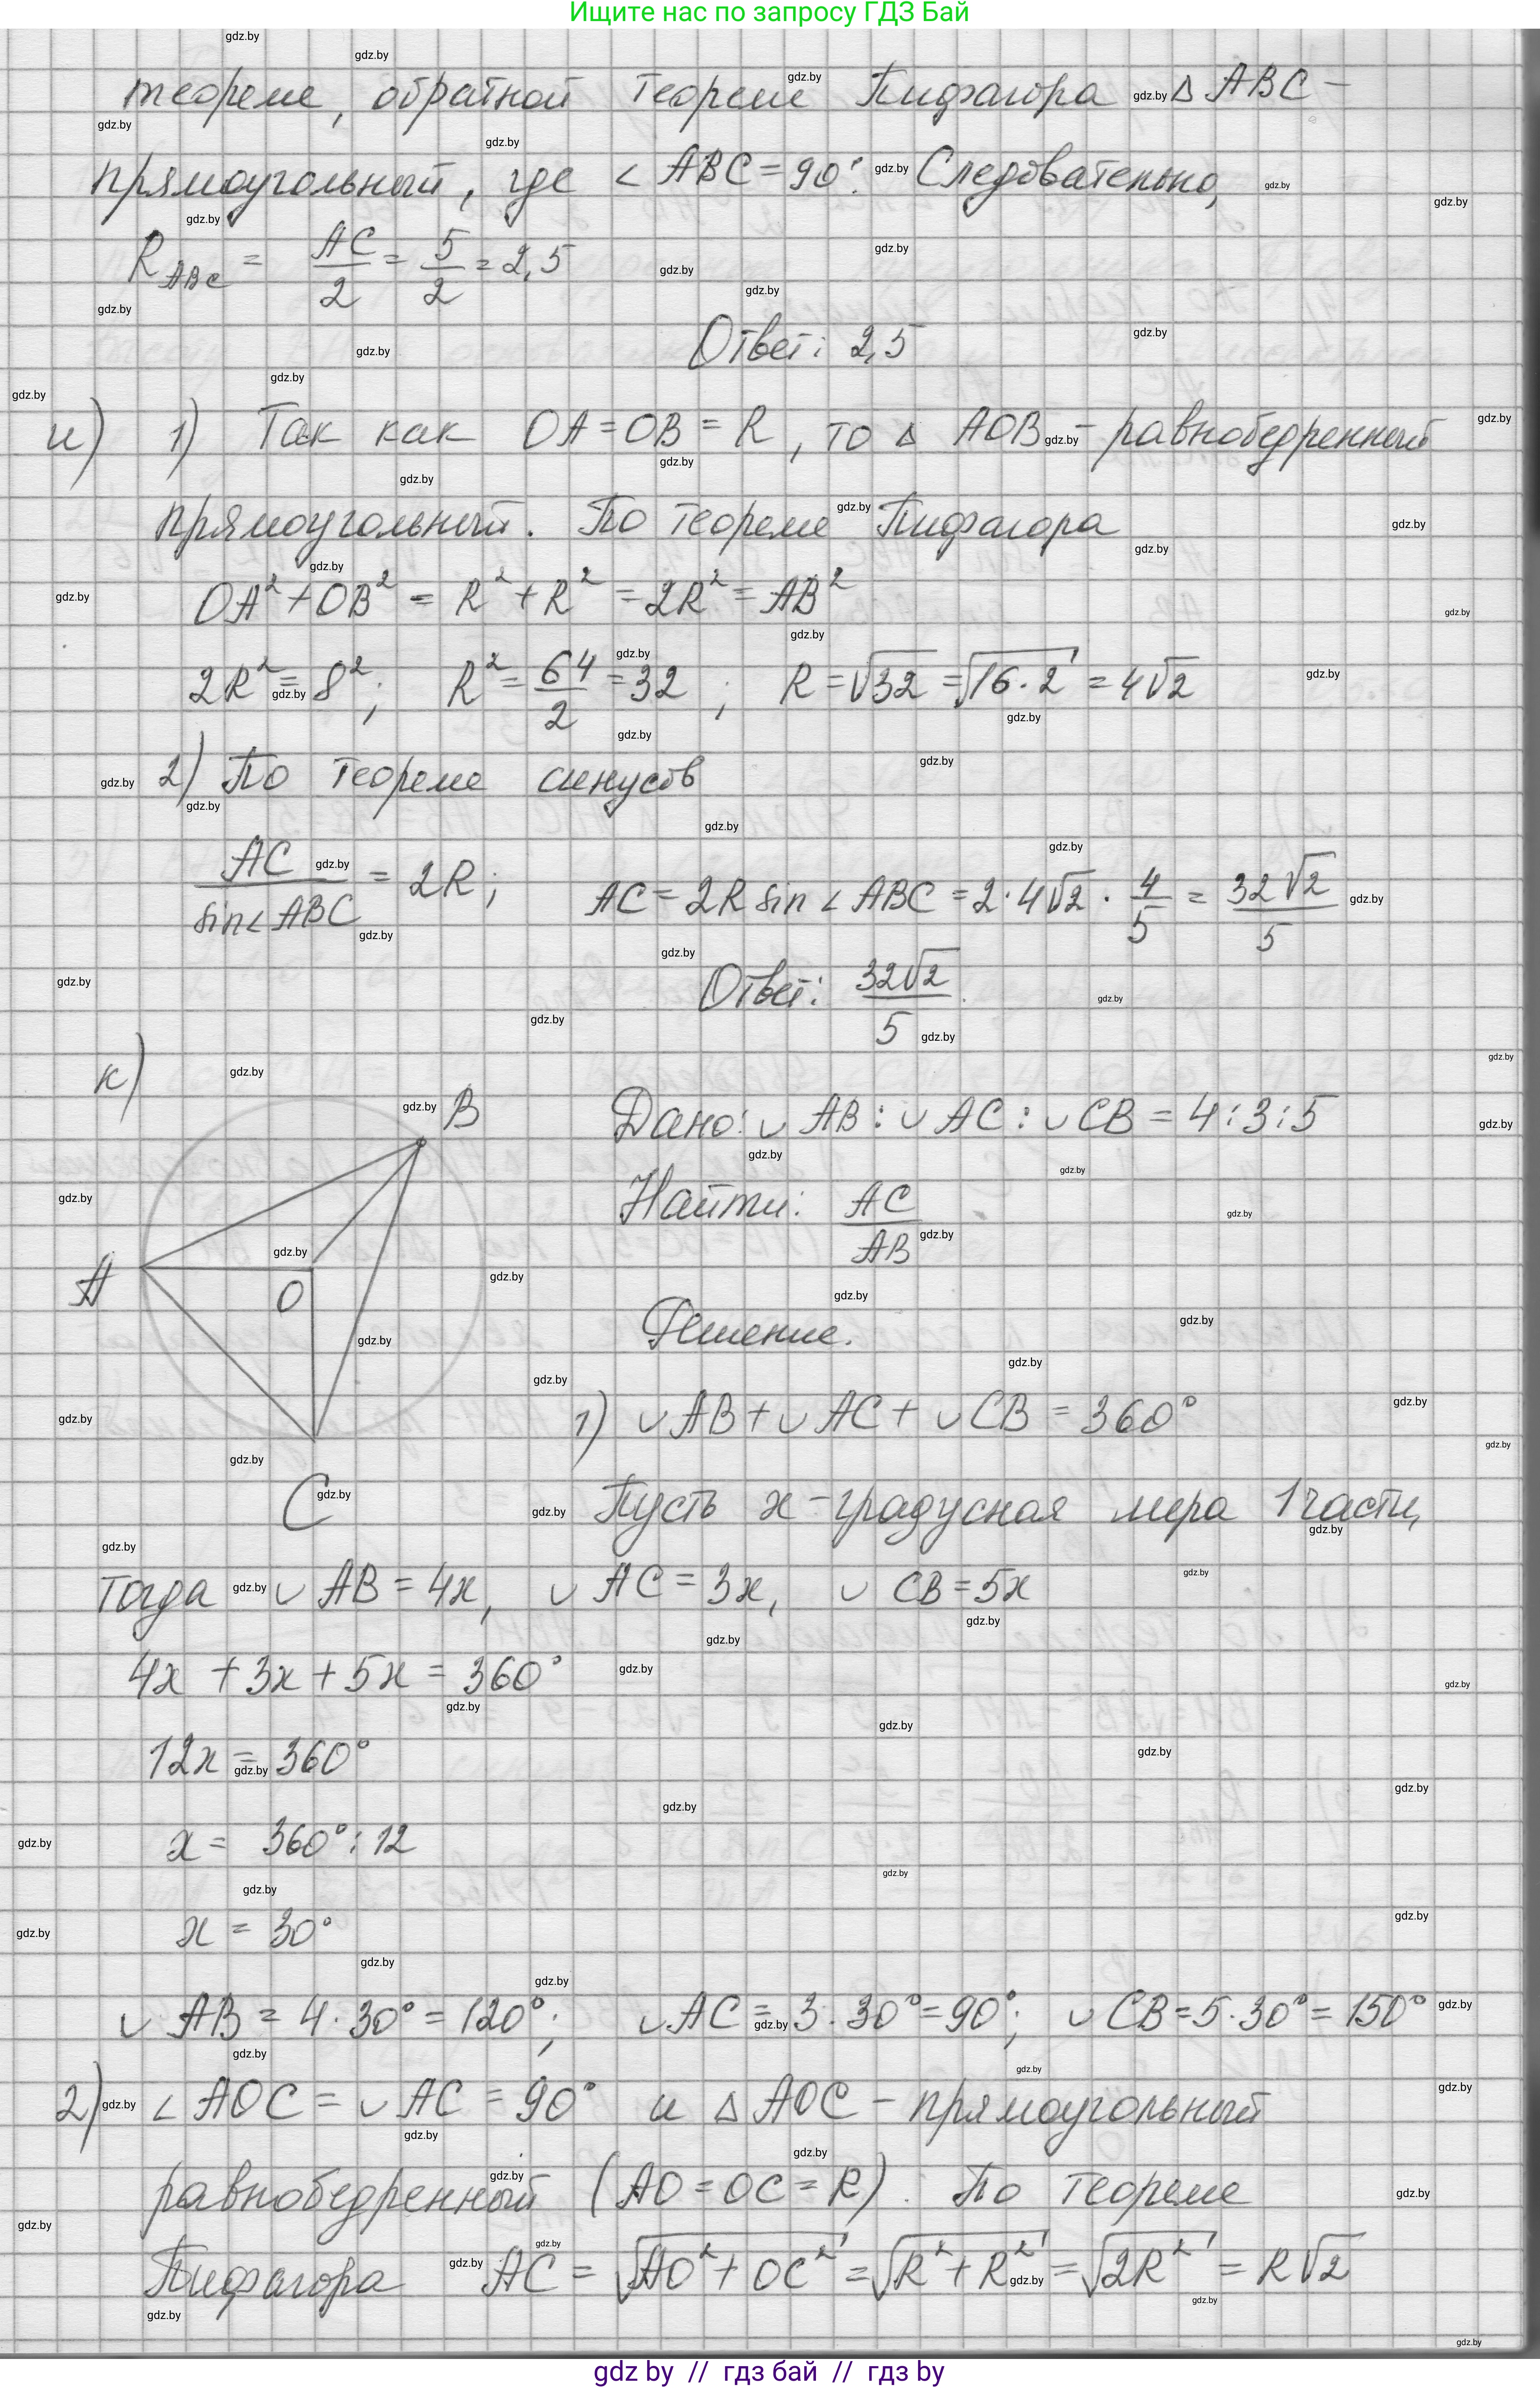 Ищите нас по запросу ГДЗ Бай
теореме, обратной теореме Пифагора △ABC –
прямоугольный, где ∠ABC = 90°. Следовательно,
R_ABC = AC/2 = 5/2 = 2,5
Ответ: 2,5
и) 1) Так как OA = OB = R, то △ AOB – равнобедренный
прямоугольный. По теореме Пифагора
OA² + OB² = R² + R² = 2R² = AB²
2R² = 8²; R² = 64/2 = 32; R = √32 = √16·2 = 4√2
2) По теореме синусов
AC/sin∠ABC = 2R; AC = 2R sin∠ABC = 2·4√2 · 4/5 = 32√2/5
Ответ: 32√2/5
к)
B
A
O
C
Дано: ∪AB : ∪AC : ∪CB = 4:3:5
Найти: AC/AB
Решение.
1) ∪AB + ∪AC + ∪CB = 360°
Пусть x – градусная мера 1 части,
тогда ∪AB = 4x, ∪AC = 3x, ∪CB = 5x
4x + 3x + 5x = 360°
12x = 360°
x = 360° : 12
x = 30°
∪AB = 4·30° = 120°; ∪AC = 3·30° = 90°; ∪CB = 5·30° = 150°
2) ∠AOC = ∪AC = 90° и △AOC – прямоугольный
равнобедренный (AO = OC = R). По теореме
Пифагора AC = √AO² + OC² = √R² + R² = √2R² = R√2
gdz by // гдз бай // гдз by